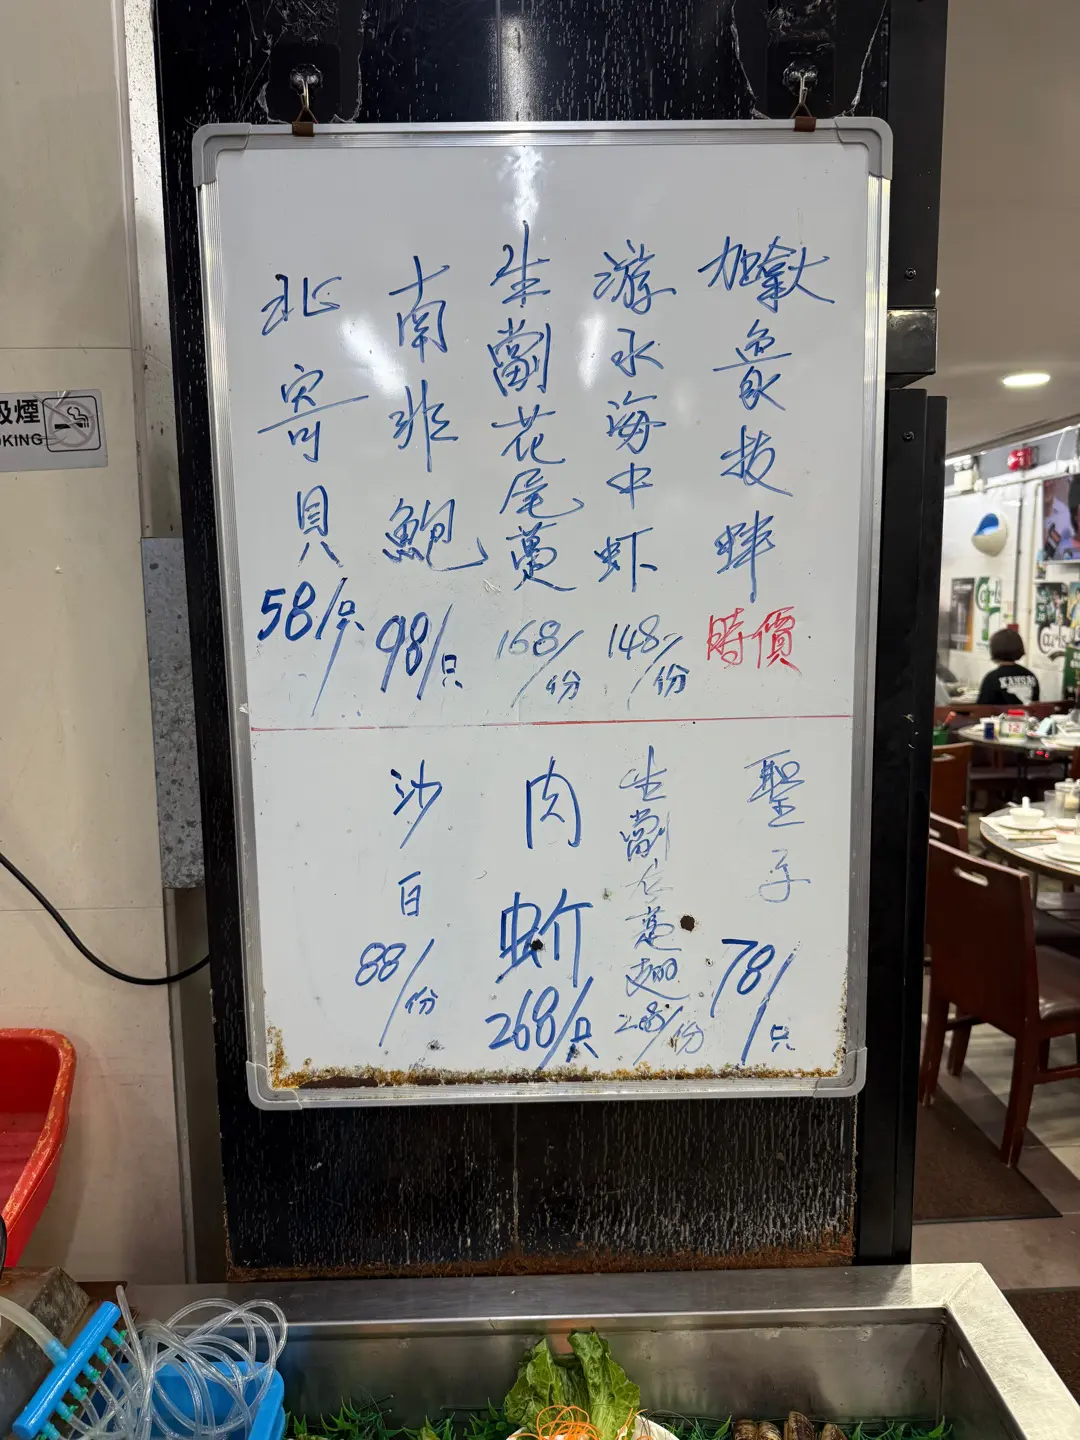 加拿大象拔蚌
時價
游水海中虾
148/份
生劏花尾躉
168/份
南非鮑
98/只
北寄貝
58/只
聖子
78/只
生劏
躉翅
/份
肉蚧
268/只
沙白
88/份
吸煙
OKING
KANSAS